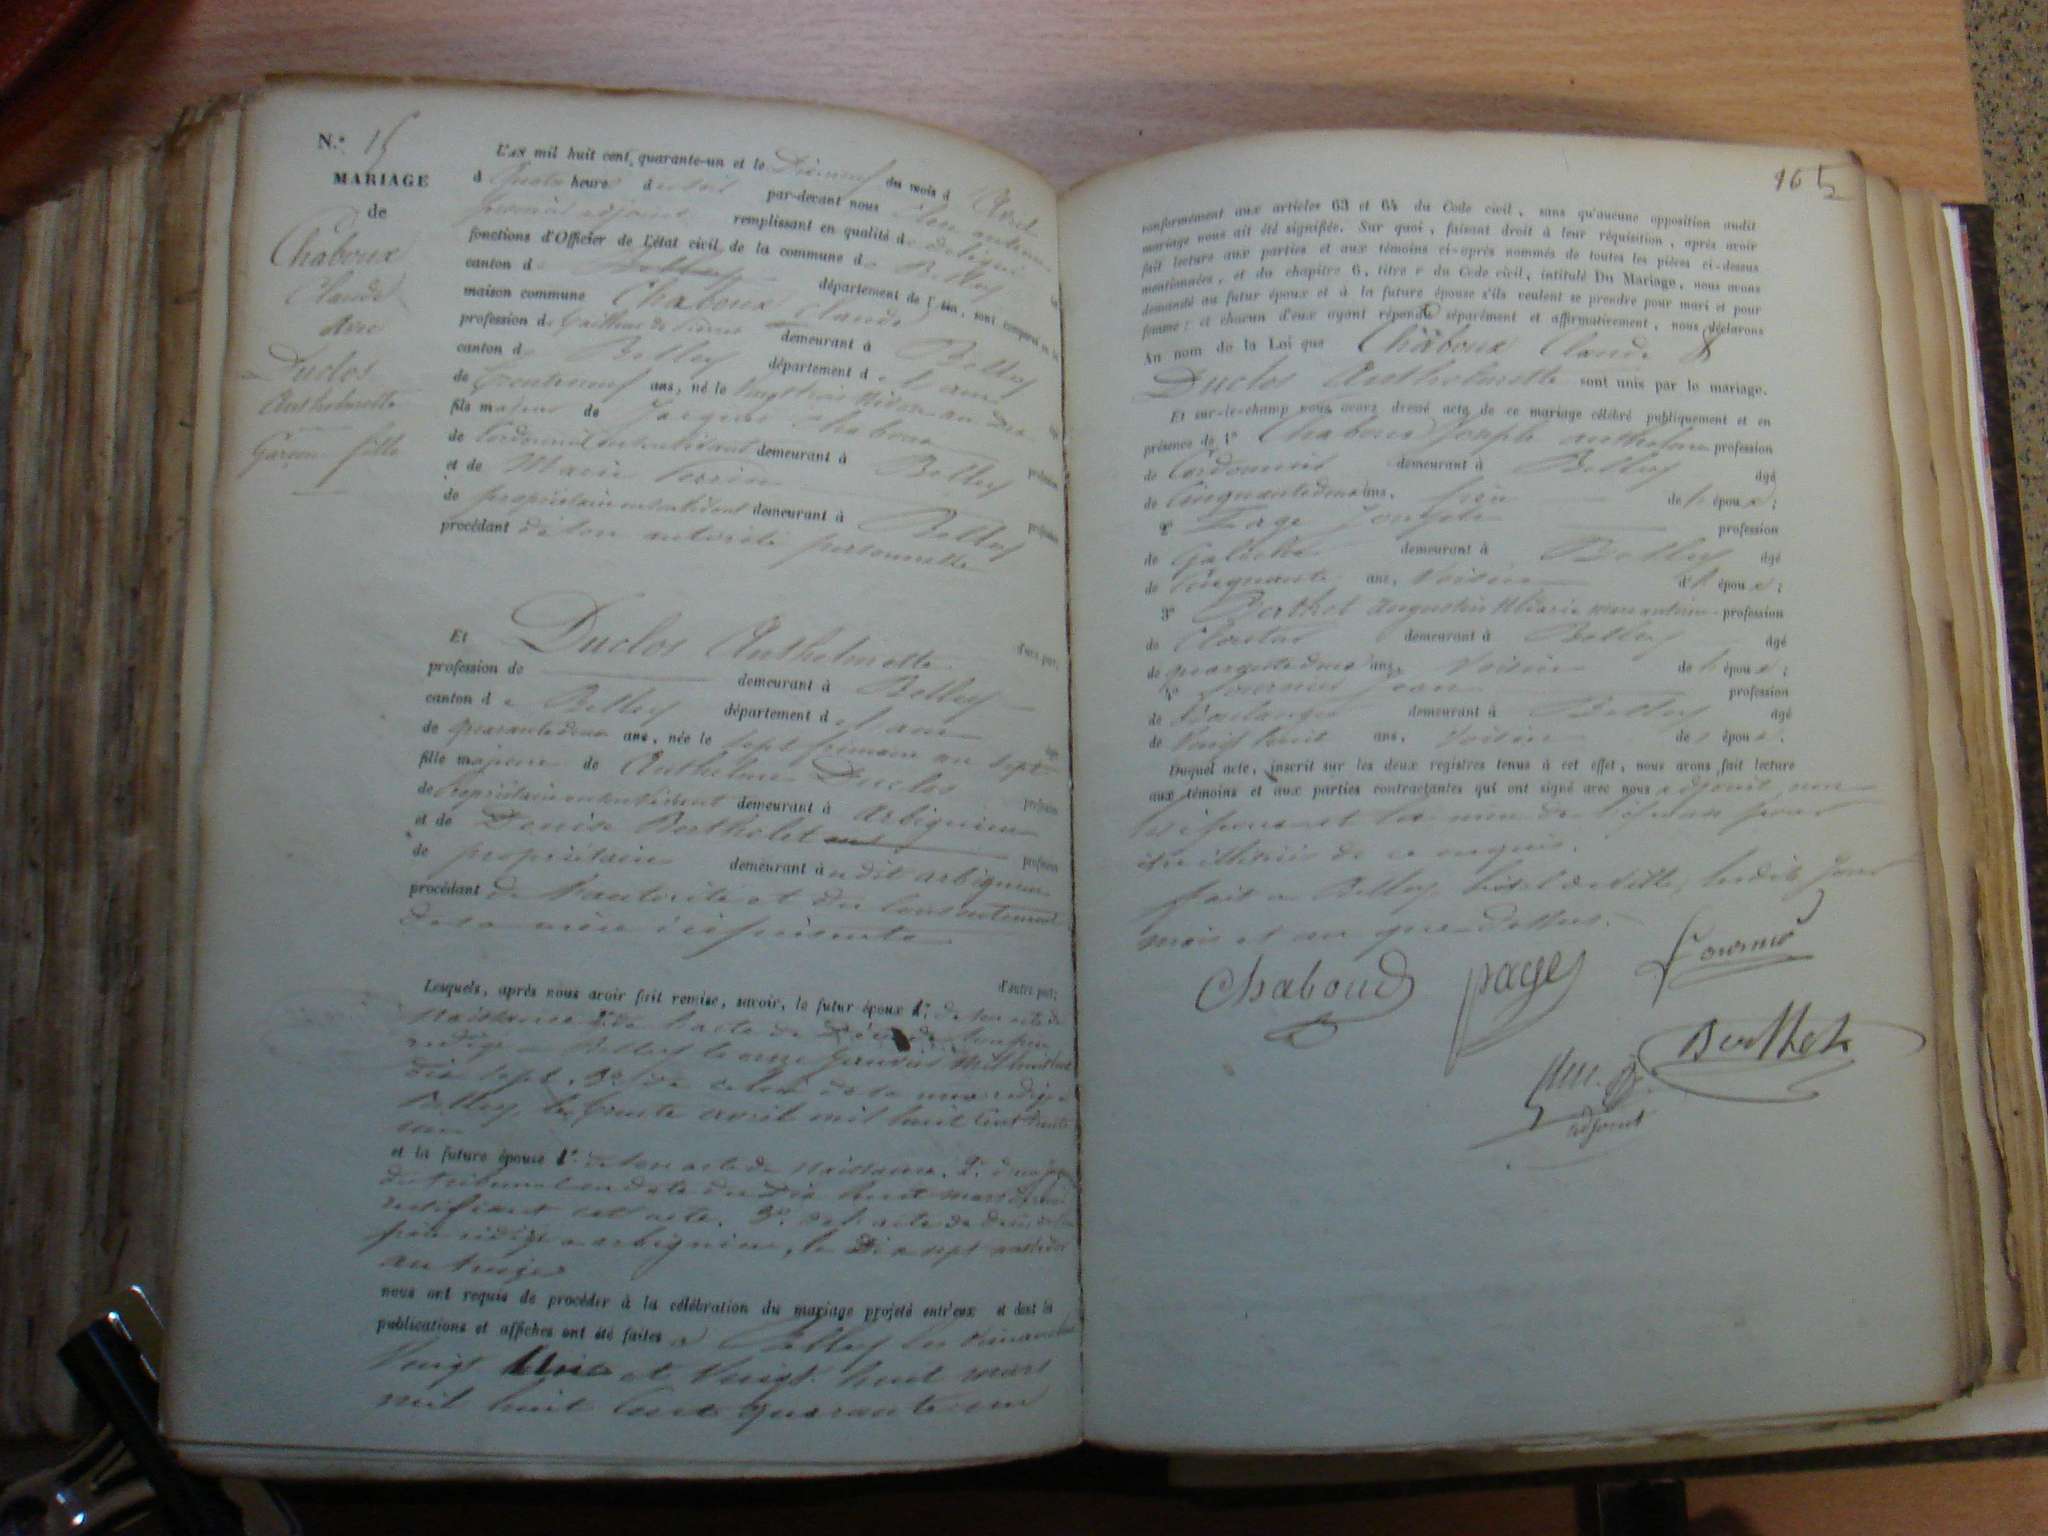 N.º 15
MARIAGE
de
Chaboux
Claude
avec
Duclos
Anthelmette
Garçon fille
L'AN mil huit cent quarante-un et le Dixneuf du mois d'Avril
à quatre heures du soir par-devant nous
premier adjoint remplissant en qualité de délégué les
fonctions d'Officier de l'état civil, de la commune de Belley
canton de Belley département de l'Ain, sont comparus en la
maison commune Chaboux Claude
profession de tailleur de pierres demeurant à Belley
canton de Belley département de l'ain
de trenteneuf ans, né le vingt trois an dix
fils majeur de Jacques Chaboux
de Cordonnier en son vivant demeurant à Belley profession
et de Marie Perrin
de propriétaire en son vivant demeurant à Belley profession
procédant de son autorité personnelle
d'une part;
Et Duclos Anthelmette
profession de demeurant à Belley
canton de Belley département de l'ain
de quarantedeux ans, née le sept frimaire an sept
fille majeure de Anthelme Duclos
de propriétaire en son vivant demeurant à Arbignieu profession
et de Denise Berthelet
de propriétaire demeurant à udit arbignieu profession
procédant de l'autorité et du consentement
de sa mère ici présente
d'autre part;
Lesquels, après nous avoir fait remise, savoir, le futur époux 1º. de son acte de
Naissance 2º de l'acte de Décès de son père
redigé à Belley le onze Janvier Mil huit cent
dix sept. 3º de celui de sa mère redigé à
Belley, le trente avril mil huit cent trente
un
et la future épouse 1º. de son acte de Naissance. 2º.
du tribunal en date du Dix huit mars dernier
rectifiant cet acte. 3º. de l'acte de décès de son
père redigé à arbignieu, le Dix sept
an treize
nous ont requis de procéder à la célébration du mariage projeté entr'eux et dont les
publications et affiches ont été faites à Belley les dimanches
Vingt Un et Vingt huit mars
mil huit Cent quarante un
165
conformément aux articles 63 et 64 du Code civil, sans qu'aucune opposition audit
mariage nous ait été signifiée. Sur quoi, faisant droit à leur réquisition, après avoir
fait lecture aux parties et aux témoins ci-après nommés de toutes les pièces ci-dessus
mentionnées, et du chapitre 6, titre v du Code civil, intitulé Du Mariage, nous avons
demandé au futur époux et à la future épouse s'ils veulent se prendre pour mari et pour
femme; et chacun d'eux ayant répondu séparément et affirmativement, nous déclarons
Au nom de la Loi que Chaboux Claude &
Duclos Anthelmette sont unis par le mariage.
Et sur-le-champ nous avons dressé acte de ce mariage célébré publiquement et en
présence de 1º Chaboux Joseph anthelme profession
de Cordonnier demeurant à Belley âgé
de Cinquantedeux ans, frère de l'époux;
2º Page Joseph profession
de demeurant à Belley âgé
de Cinquante ans, Voisin de l'époux;
3º Berthet augustin Marie marc antoine profession
de demeurant à Belley âgé
de quarantedeux ans, Voisin de l'époux;
4º Fournier Jean profession
de Boulanger demeurant à Belley âgé
de Vingt huit ans, Voisin de l'époux.
Duquel acte, inscrit sur les deux registres tenus à cet effet, nous avons fait lecture
aux témoins et aux parties contractantes qui ont signé avec nous adjoint, non
les époux et la mère de l'épouse pour
être illitérés de ce enquis.
fait à Belley hôtel de ville, lesdits jour
mois et an que dessus.
Chaboud page Fournier
Berthet
adjoint